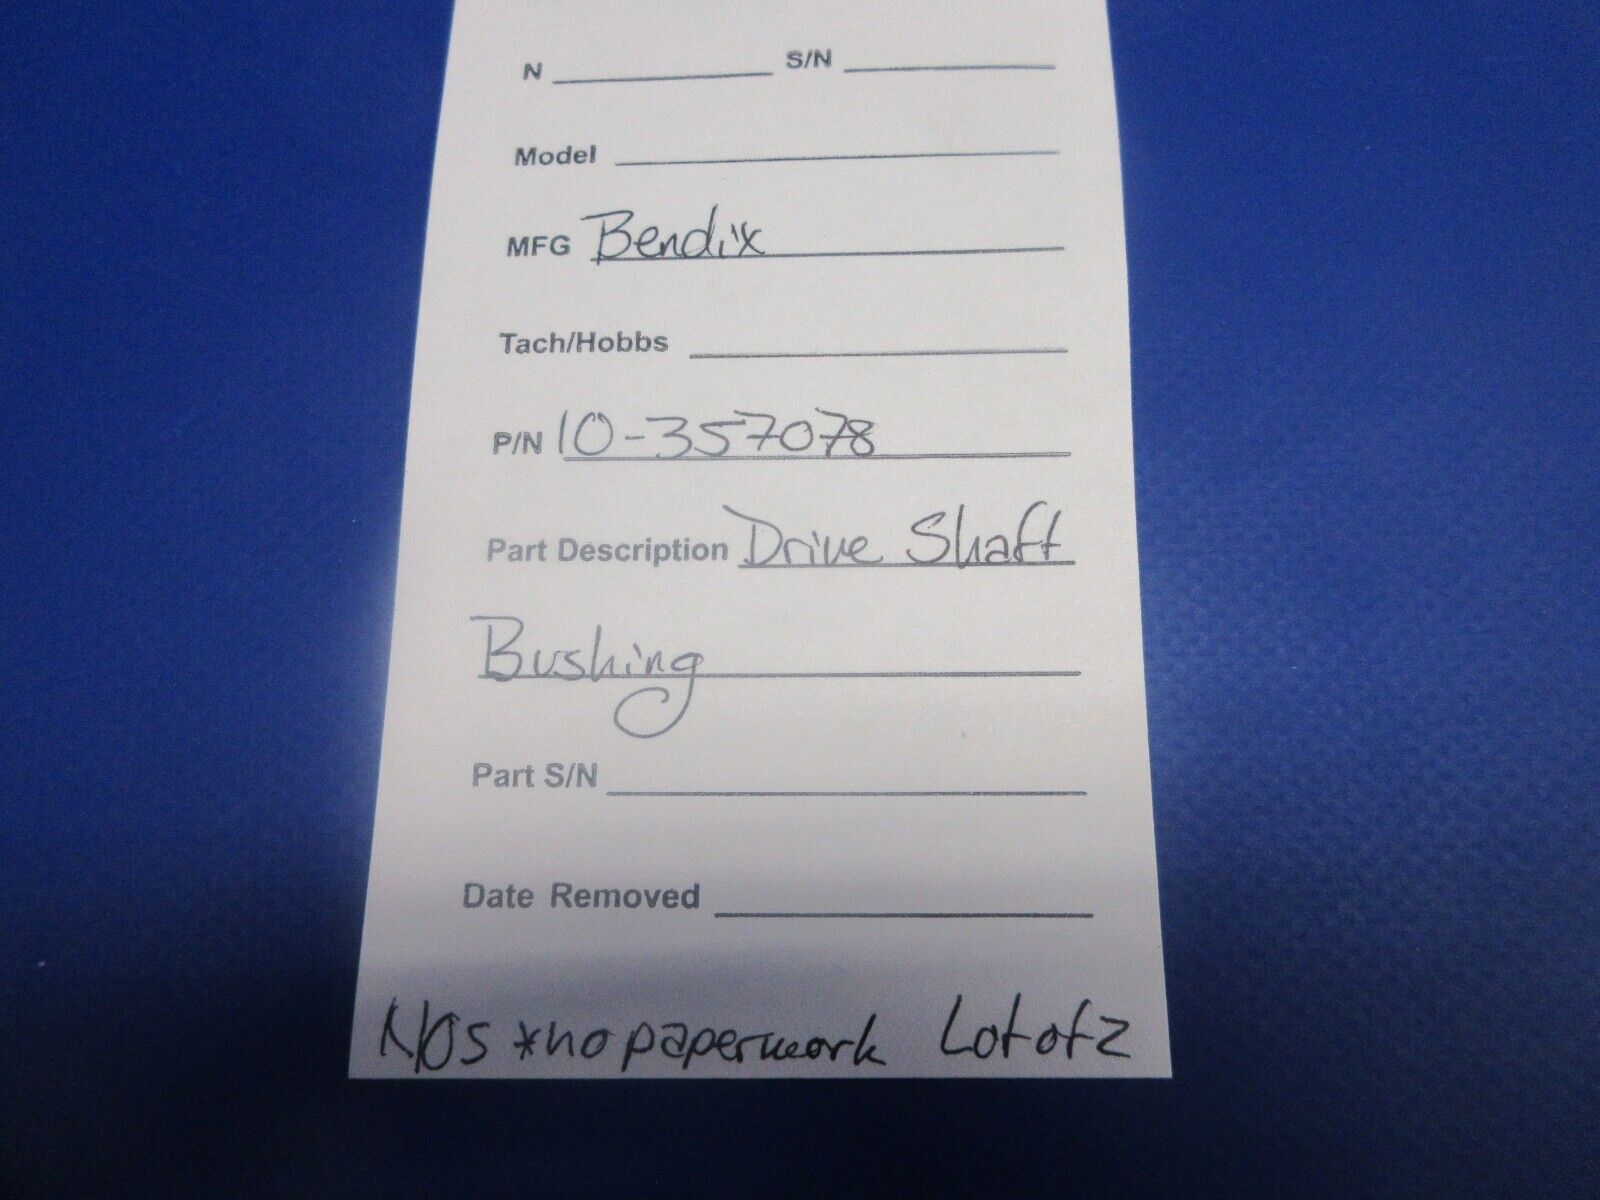 N S/N
Model
MFG Bendix
Tach/Hobbs
P/N 10-357078
Part Description Drive Shaft
Bushing
Part S/N
Date Removed
NOS *no paperwork Lot of 2